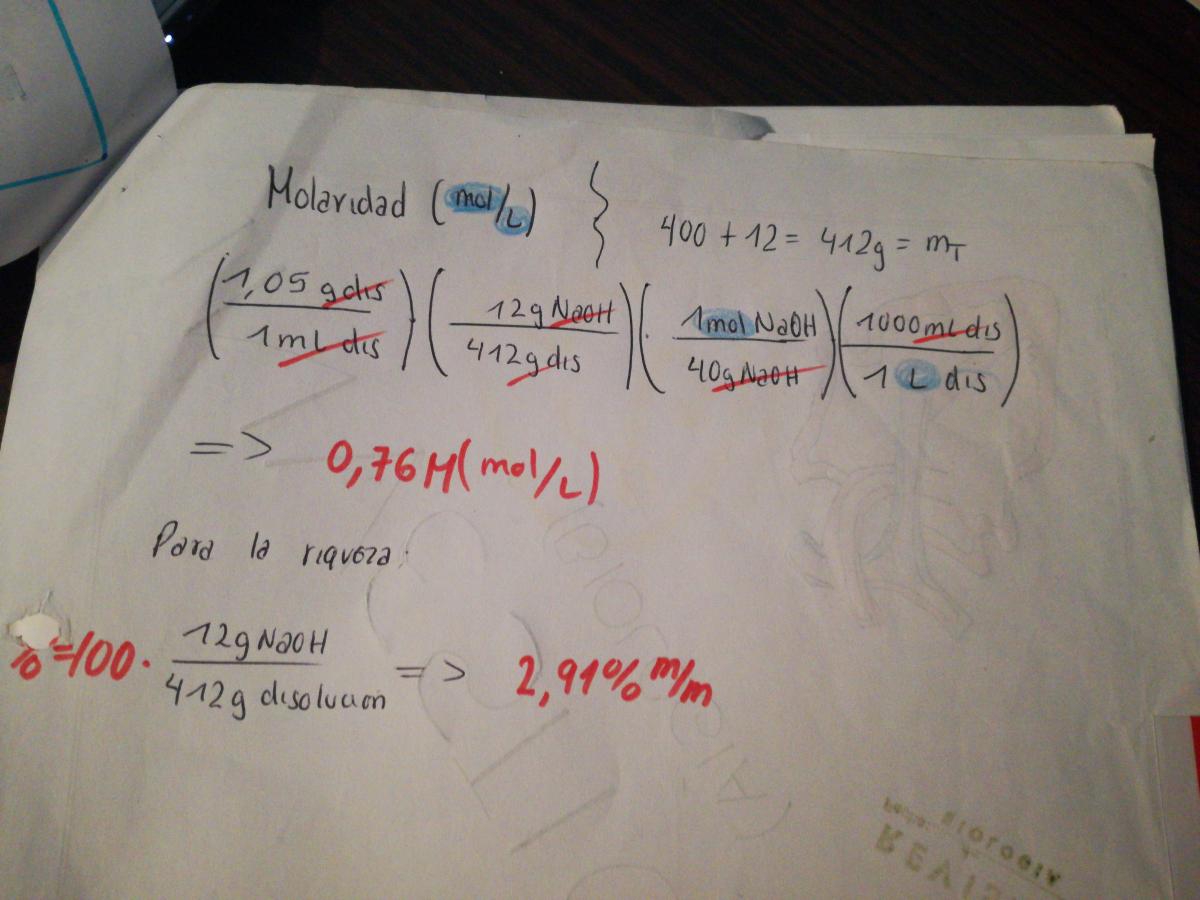 Molaridad (mol/L) } 400 + 12 = 412g = mT
(1,05 g dis / 1 mL dis) · (12g NaOH / 412g dis) · (1 mol NaOH / 40g NaOH) (1000 mL dis / 1 L dis)
=> 0,76 M (mol/L)
Para la riqueza:
%=100 · 12g NaOH / 412g disolucion => 2,91% m/m